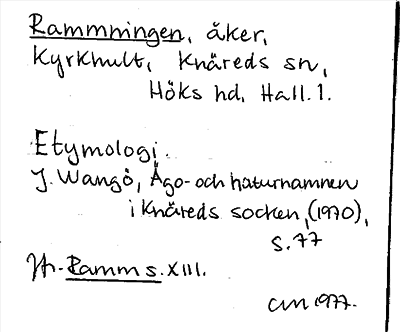 Rammningen, åker,
Kyrkhult, Knäreds sn,
Höks hd, Hall. l.
Etymologi.
J. Wangö, Ägo- och naturnamnen
i Knäreds socken, (1970),
s. 77
Jfr. Ramm s. XIII.
1977.